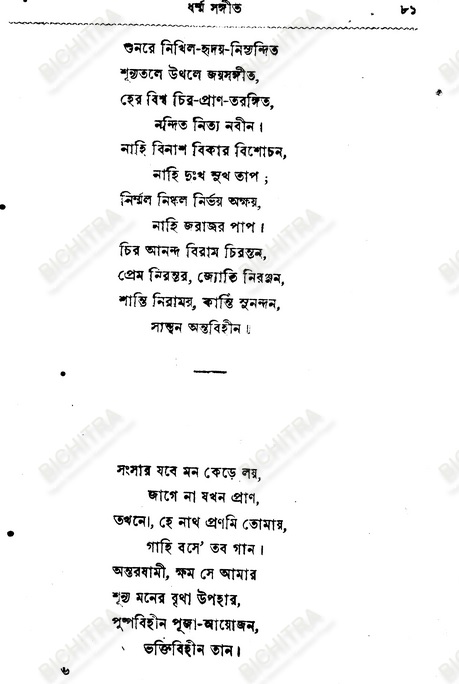 ধর্ম্ম সঙ্গীত ৮১
শুনরে নিখিল-হৃদয়-নিস্যন্দিত
শূন্যতলে উথলে জয়সঙ্গীত,
হের বিশ্ব চির-প্রাণ-তরঙ্গিত,
নন্দিত নিত্য নবীন।
নাহি বিনাশ বিকার বিশোচন,
নাহি দুঃখ সুখ তাপ;
নির্ম্মল নিষ্কল নির্ভয় অক্ষয়,
নাহি জরাজর পাপ।
চির আনন্দ বিরাম চিরন্তন,
প্রেম নিরন্তর, জ্যোতি নিরঞ্জন,
শান্তি নিরাময়, কান্তি সুনন্দন,
সান্ত্বন অন্তবিহীন।
সংসার যবে মন কেড়ে লয়,
জাগে না যখন প্রাণ,
তখনো, হে নাথ প্রণমি তোমায়,
গাহি বসে' তব গান।
অন্তরযামী, ক্ষম সে আমার
শূন্য মনের বৃথা উপহার,
পুষ্পবিহীন পূজা-আয়োজন,
ভক্তিবিহীন তান।
৬
BICHITRA